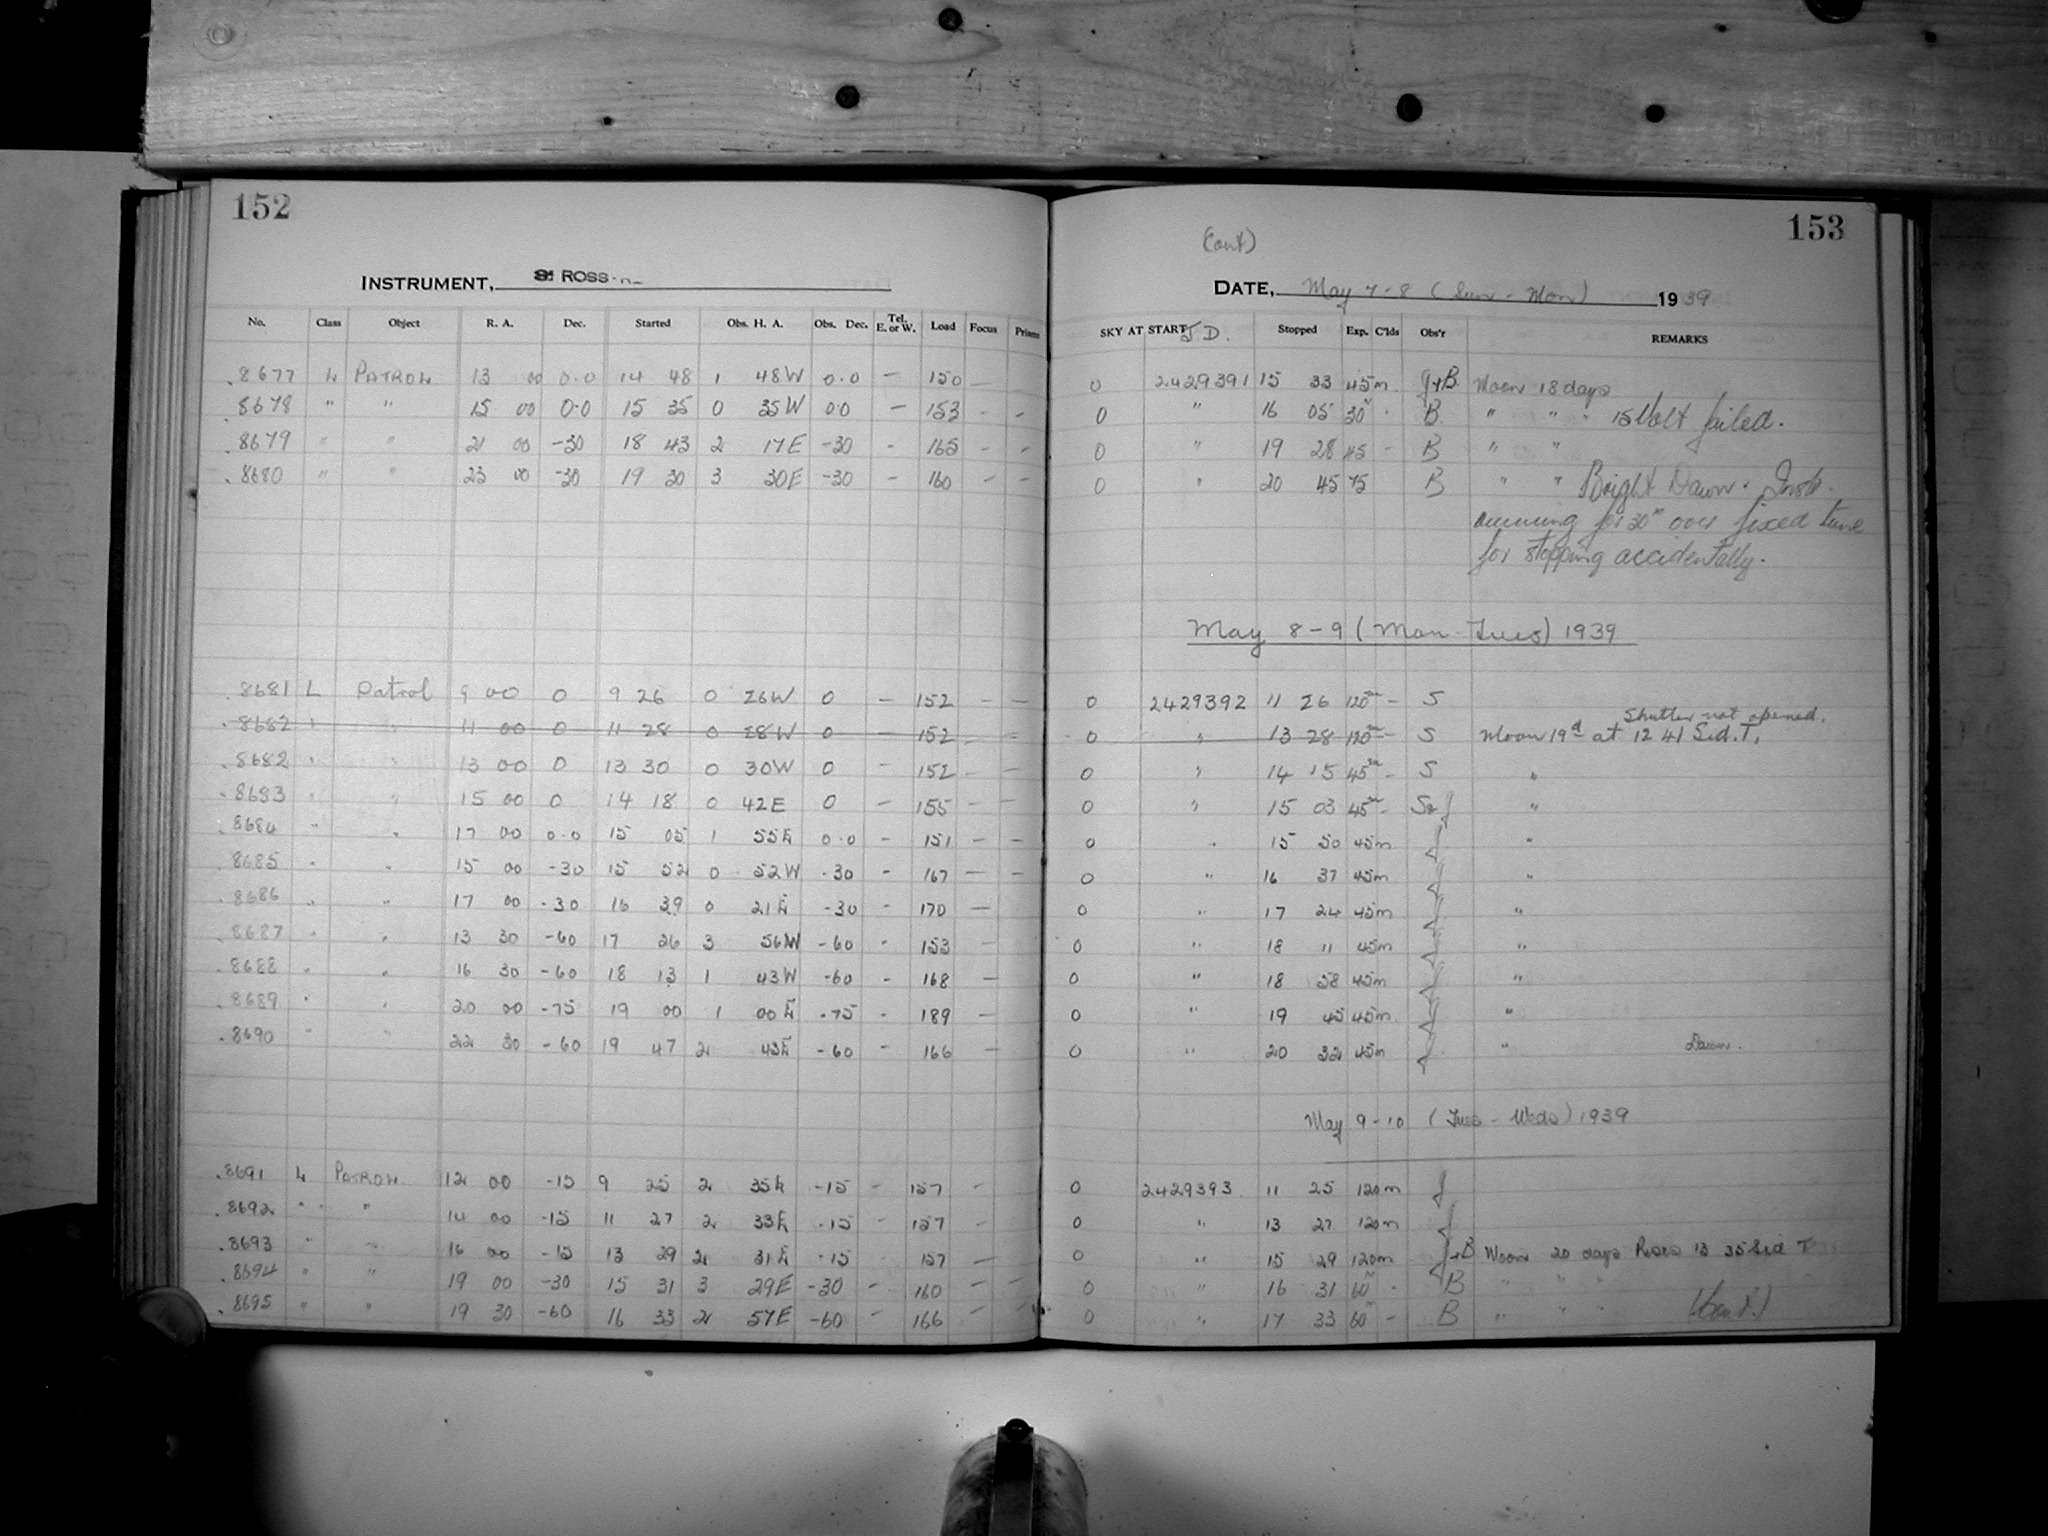 152
INSTRUMENT, ROSS
No. Class Object R. A. Dec. Started Obs. H. A. Obs. Dec. Tel. E. or W. Load Focus Prisms
8677 L PATROL 13 00 0.0 14 48 1 48W 0.0 — 150 —
8678 " " 15 00 0.0 15 35 0 35W 0.0 — 153 - -
8679 " " 21 00 -30 18 43 2 17E -30 - 165 - -
8680 " " 23 00 -30 19 30 3 30E -30 - 160 - -
8681 L Patrol 9 00 0 9 26 0 26W 0 — 152 — —
8682 " " 11 00 0 11 28 0 28W 0 — 152 — —
8682 " " 13 00 0 13 30 0 30W 0 — 152 — —
8683 " " 15 00 0 14 18 0 42E 0 — 155 — —
8684 " " 17 00 0.0 15 05 1 55E 0.0 - 151 — —
8685 " " 15 00 -30 15 52 0 52W -30 - 167 — —
8686 " " 17 00 -30 16 39 0 21E -30 - 170 —
8687 " " 13 30 -60 17 26 3 56W -60 - 153 —
8688 " " 16 30 -60 18 13 1 43W -60 - 168 —
8689 " " 20 00 -75 19 00 1 00E -75 - 189 —
8690 " " 22 30 -60 19 47 2 43E -60 - 166 —
8691 L PATROL 12 00 -15 9 25 2 35E -15 - 157 -
8692 " " 14 00 -15 11 27 2 33E -15 - 157 -
8693 " " 16 00 -15 13 29 2 31E -15 - 157 —
8694 " " 19 00 -30 15 31 3 29E -30 - 160 — —
8695 " " 19 30 -60 16 33 2 57E -60 - 166 — —
153
(Cont)
DATE, May 7-8 (Sun - Mon) 1939
SKY AT START J D. Stopped Exp. C'lds Obs'r REMARKS
0 2429391 15 33 45m J+B. Moon 18 days
0 " 16 05 30m - B. " " " 15 Volt failed.
0 " 19 28 45 - B " "
0 " 20 45 75 B " " Bright Dawn. Inst.
running for 30m over fixed time
for stopping accidentally.
May 8-9 (Mon - Tues) 1939
0 2429392 11 26 120m - S
Shutter not opened.
0 " 13 28 120m - S Moon 19d at 12 41 Sid. T.
0 " 14 15 45m - S "
0 " 15 03 45m - S&J "
0 " 15 50 45m J "
0 " 16 37 45m J "
0 " 17 24 45m J "
0 " 18 11 45m J "
0 " 18 58 45m J "
0 " 19 45 45m J "
0 " 20 32 45m J " Dawn.
May 9-10 (Tues - Weds) 1939
0 2429393 11 25 120m J
0 " 13 27 120m J
0 " 15 29 120m J+B Moon 20 days Rises 13 35 Sid T
0 " 16 31 60m - B " " "
0 " 17 33 60m - B " " " (Cont)